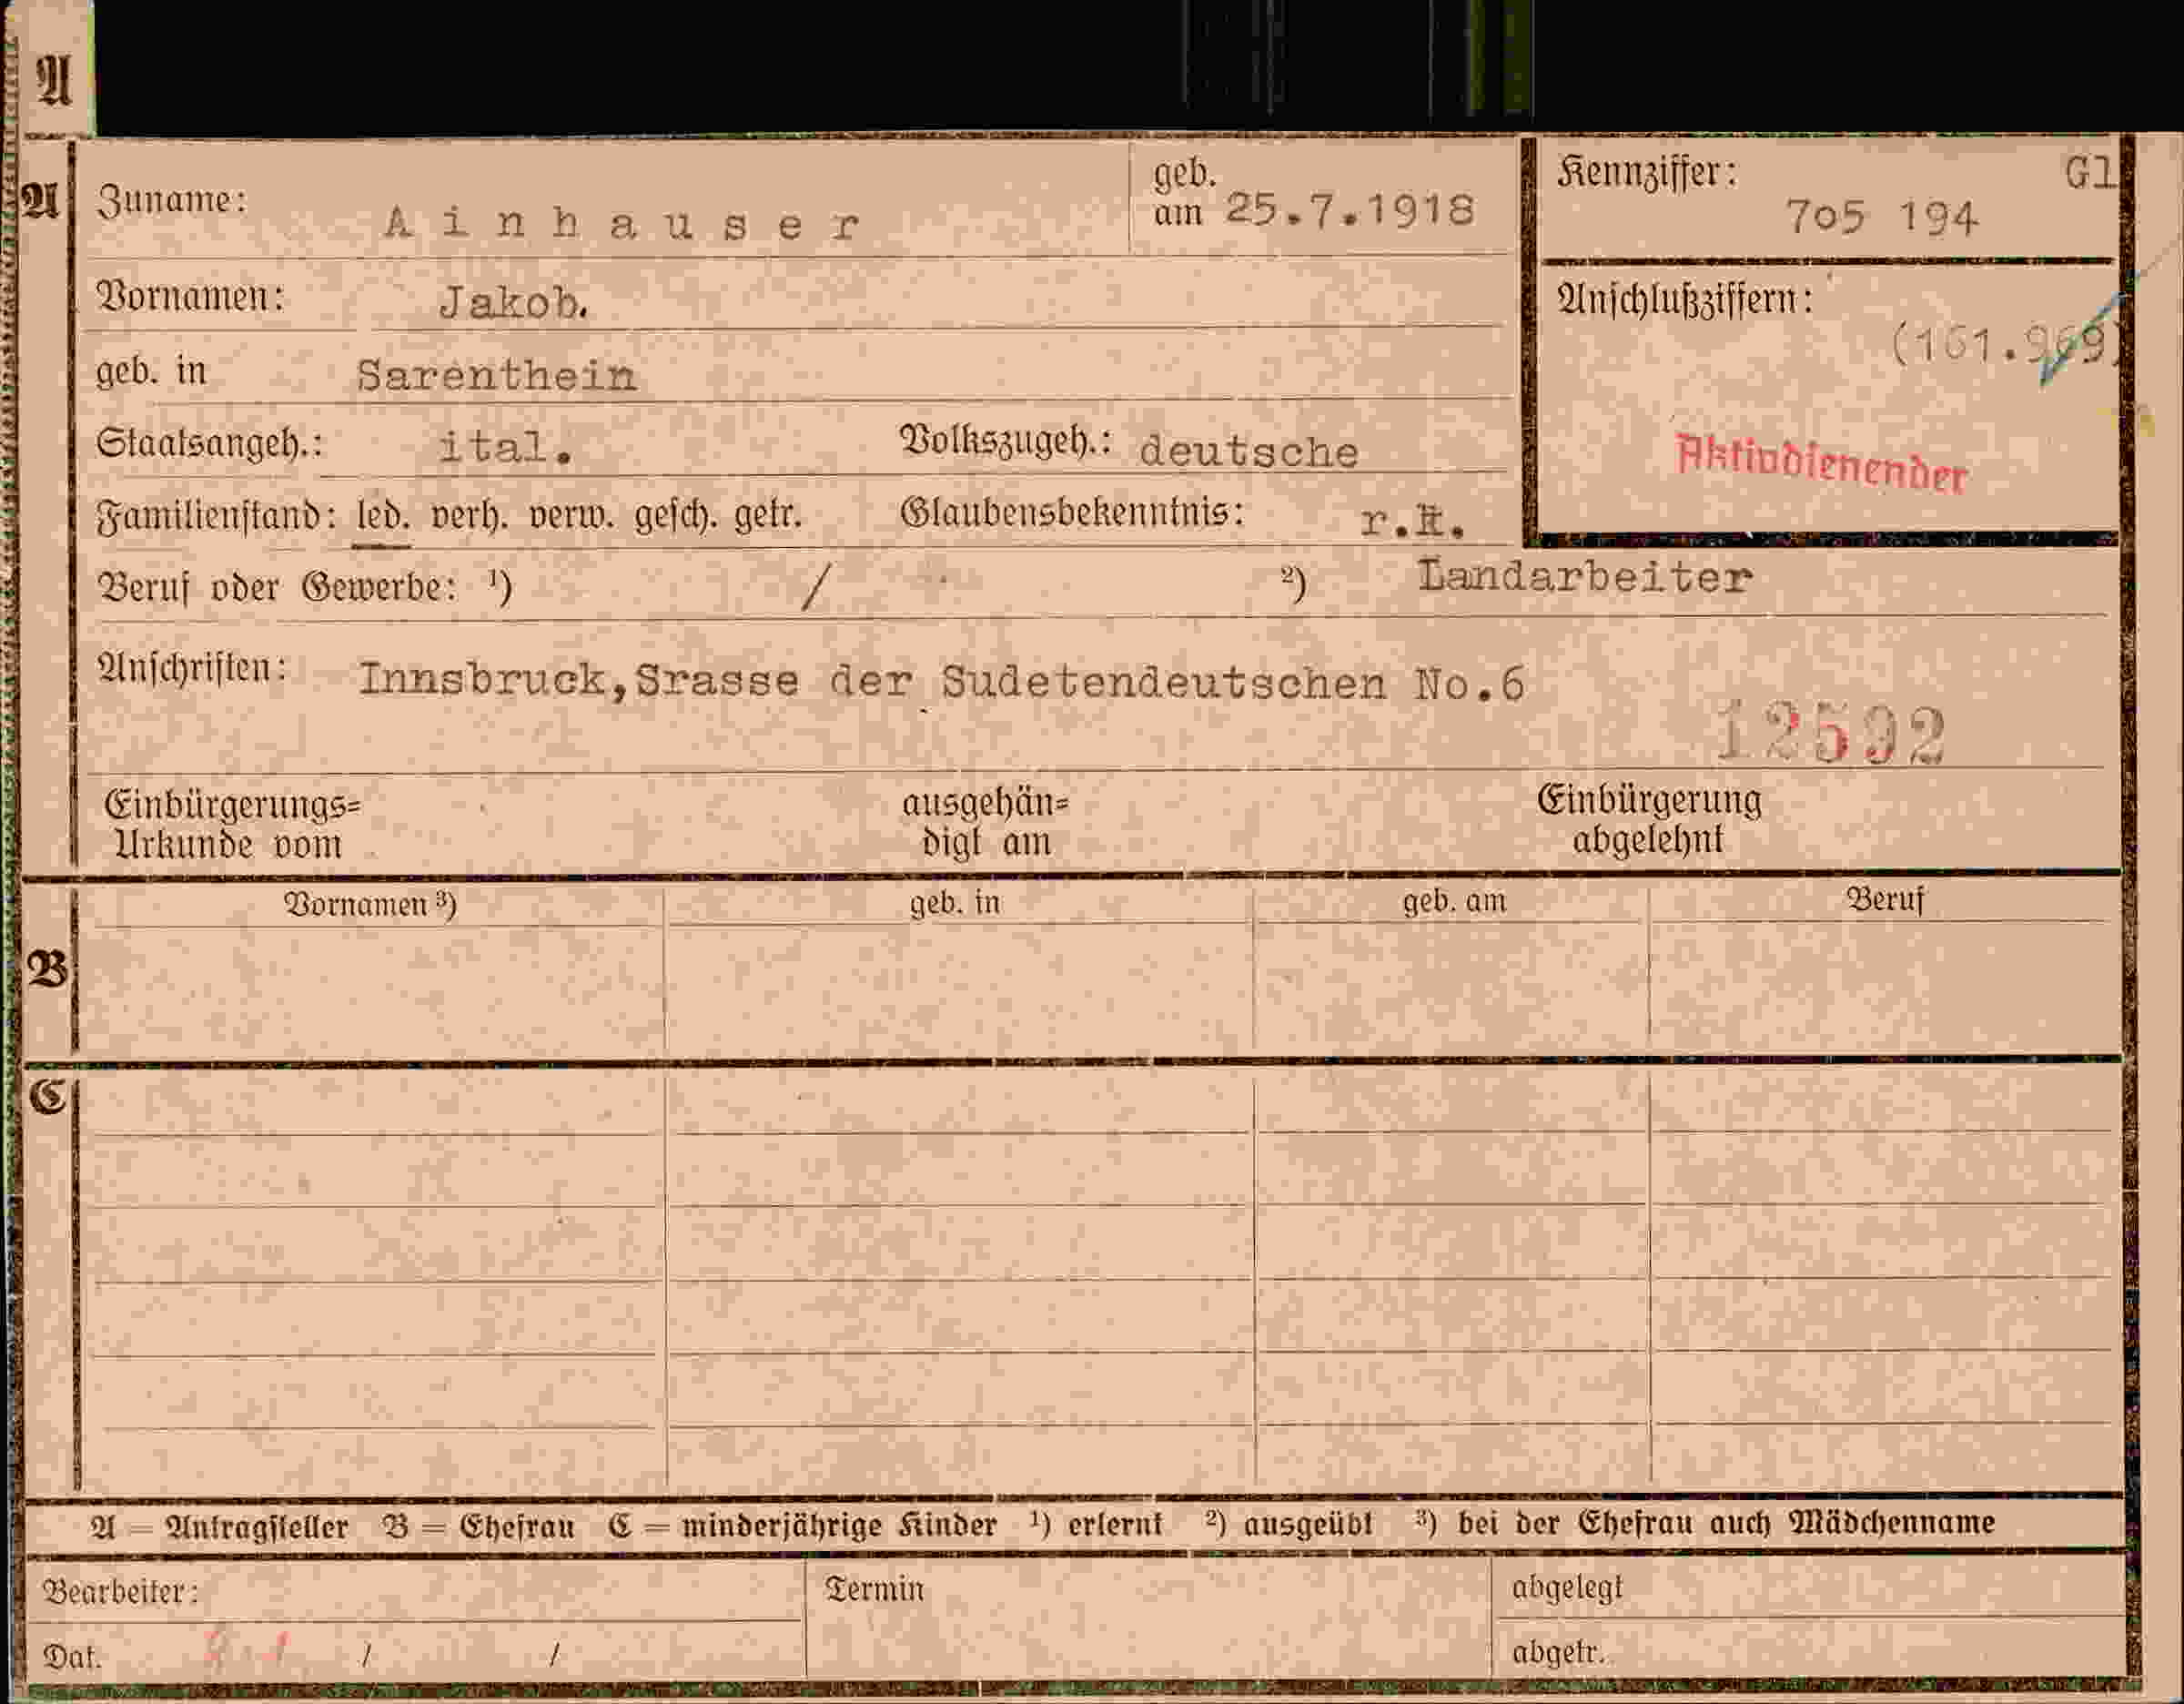 A
A
Zuname: Ainhauser geb. am 25.7.1918
Kennziffer: Gl
705 194
Vornamen: Jakob.
Anschlußziffern:
geb. in Sarenthein
Staatsangeh.: ital. Volkszugeh.: deutsche
Aktivdienender
Familienstand: led. verh. verw. gesch. getr. Glaubensbekenntnis: r.k.
Beruf oder Gewerbe: ¹) / ²) Landarbeiter
Anschriften: Innsbruck,Srasse der Sudetendeutschen No.6
12592
Einbürgerungs= ausgehän= Einbürgerung
Urkunde vom digt am abgelehnt
Vornamen ³) geb. in geb. am Beruf
B
C
A = Antragsteller B = Ehefrau C = minderjährige Kinder ¹) erlernt ²) ausgeübt ³) bei der Ehefrau auch Mädchenname
Bearbeiter: Termin abgelegt
Dat. / / abgetr.